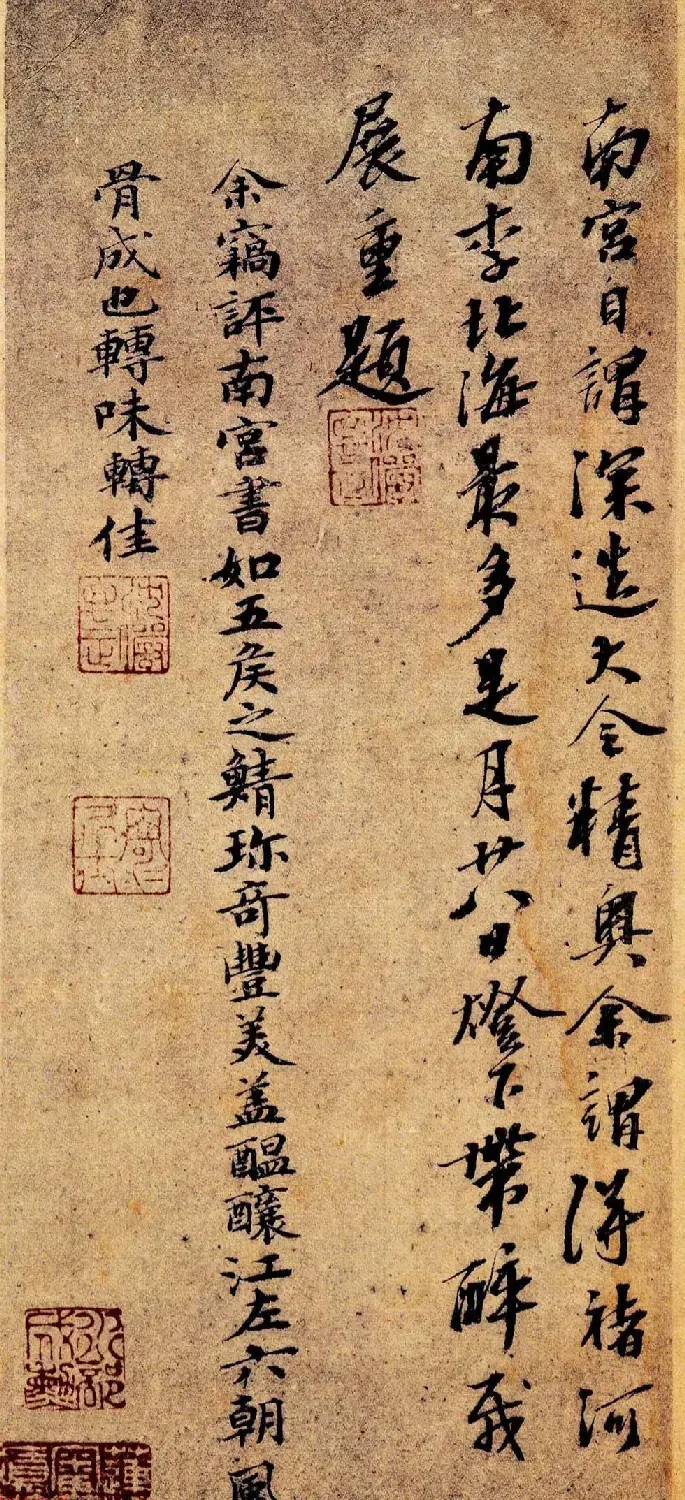 南宮自謂深造大令精奧余謂得褚河
南李北海最多是月廿八日燈下帶醉我
展重題
余竊評南宮書如五侯之鯖珎奇豐美盖醖釀江左六朝風
骨成也轉味轉佳